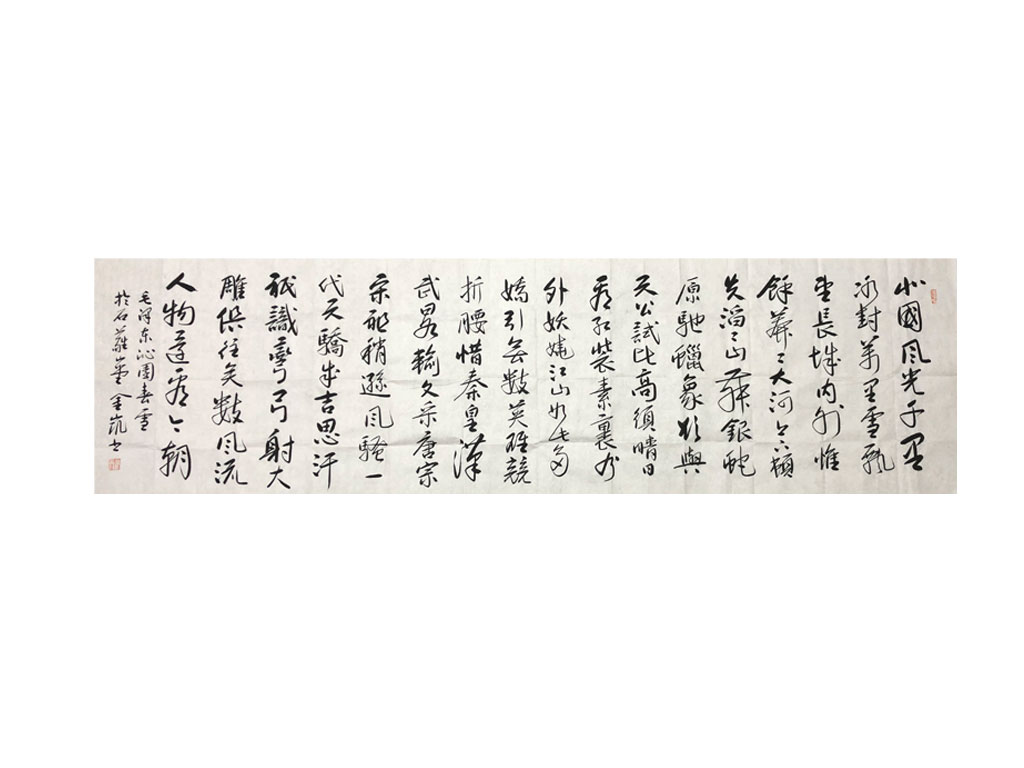 北國风光千里
冰封萬里雪飄
望長城内外惟
餘莽〻大河上下頓
失滔〻山舞銀蛇
原馳蠟象欲與
天公試比高須晴日
看红裝素裹分
外妖嬈江山如此多
嬌引無數英雄競
折腰惜秦皇漢
武畧輸文采唐宗
宋祖稍遜风騷一
代天驕成吉思汗
祇識彎弓射大
雕俱往矣數风流
人物還看今朝
毛泽东沁園春雪
於石蘿堂金